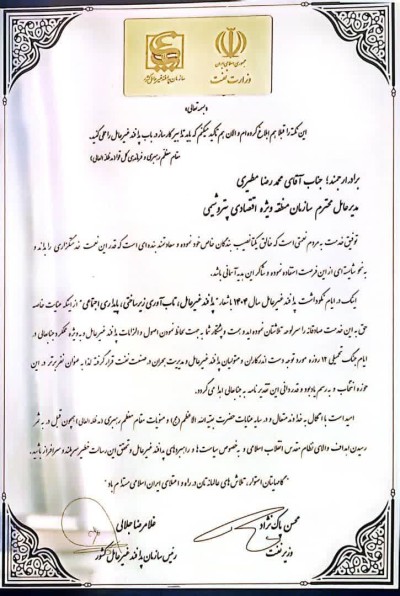 جمهوری اسلامی ایران
وزارت نفت
سازمان پدافند غیرعامل کشور
«بسمه تعالی»
این نکته را قبلاً هم ابلاغ کرده‌ام و الان هم تأکید میکنم که باید تدابیر کارساز در باب پدافند غیرعامل را طی کنید.
مقام معظم رهبری و فرماندهی کل قوا (مدظله العالی)
برادر ارجمند؛ جناب آقای محمد رضا مطیری
مدیرعامل محترم سازمان منطقه ویژه اقتصادی پتروشیمی
توفیق خدمت به مردم نعمتی است که خالق یکتا نصیب بندگان خاص خود نموده و سعادتمند بنده‌ای است که قدر این نعمت خدمتگزاری را بداند و
به نحو شایسته‌ای از این فرصت استفاده نموده و شاکر این هدیه آسمانی باشد.
اینک در ایام نکوداشت پدافند غیرعامل سال ۱۴۰۴ با شعار "پدافند غیرعامل، تاب‌آوری زیرساختی، پایداری اجتماعی" از اینکه عنایت خاصه
حق به این خدمت صادقانه را سرلوحه تلاشتان نموده‌اید و همت و پشتکار شما به جهت لحاظ نمودن اصول و الزامات پدافند غیرعامل و به ویژه عملکرد جنابعالی در
ایام جنگ تحمیلی ۱۲ روزه مورد توجه دست اندرکاران و متولیان پدافند غیرعامل و مدیریت بحران در صنعت نفت قرار گرفته لذا به عنوان نفر برتر در این
حوزه انتخاب و به رسم یادبود و قدردانی این تقدیرنامه به جنابعالی اهدا می‌گردد.
امید است با اتکال به خداوند متعال و در سایه عنایات حضرت بقیه الله الاعظم (عج) و منویات مقام معظم رهبری (مدظله العالی) همچون قبل در به ثمر
رسیدن اهداف والای نظام مقدس انقلاب اسلامی و به خصوص سیاست‌ها و راهبردهای پدافند غیرعامل و تحقق این رسالت خطیر سربلند و سرافراز باشید.
"گامهایتان استوار، تلاش‌های عالمانه‌تان در راه و اعتلای ایران اسلامی مستدام باد"
محسن پاک نژاد
وزیر نفت
غلامرضا جلالی
رئیس سازمان پدافند غیرعامل کشور